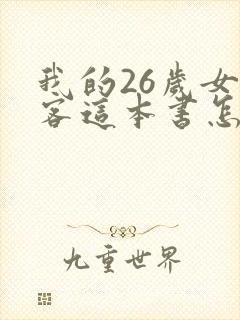 我的26歲女
客這本書怎
九重世界